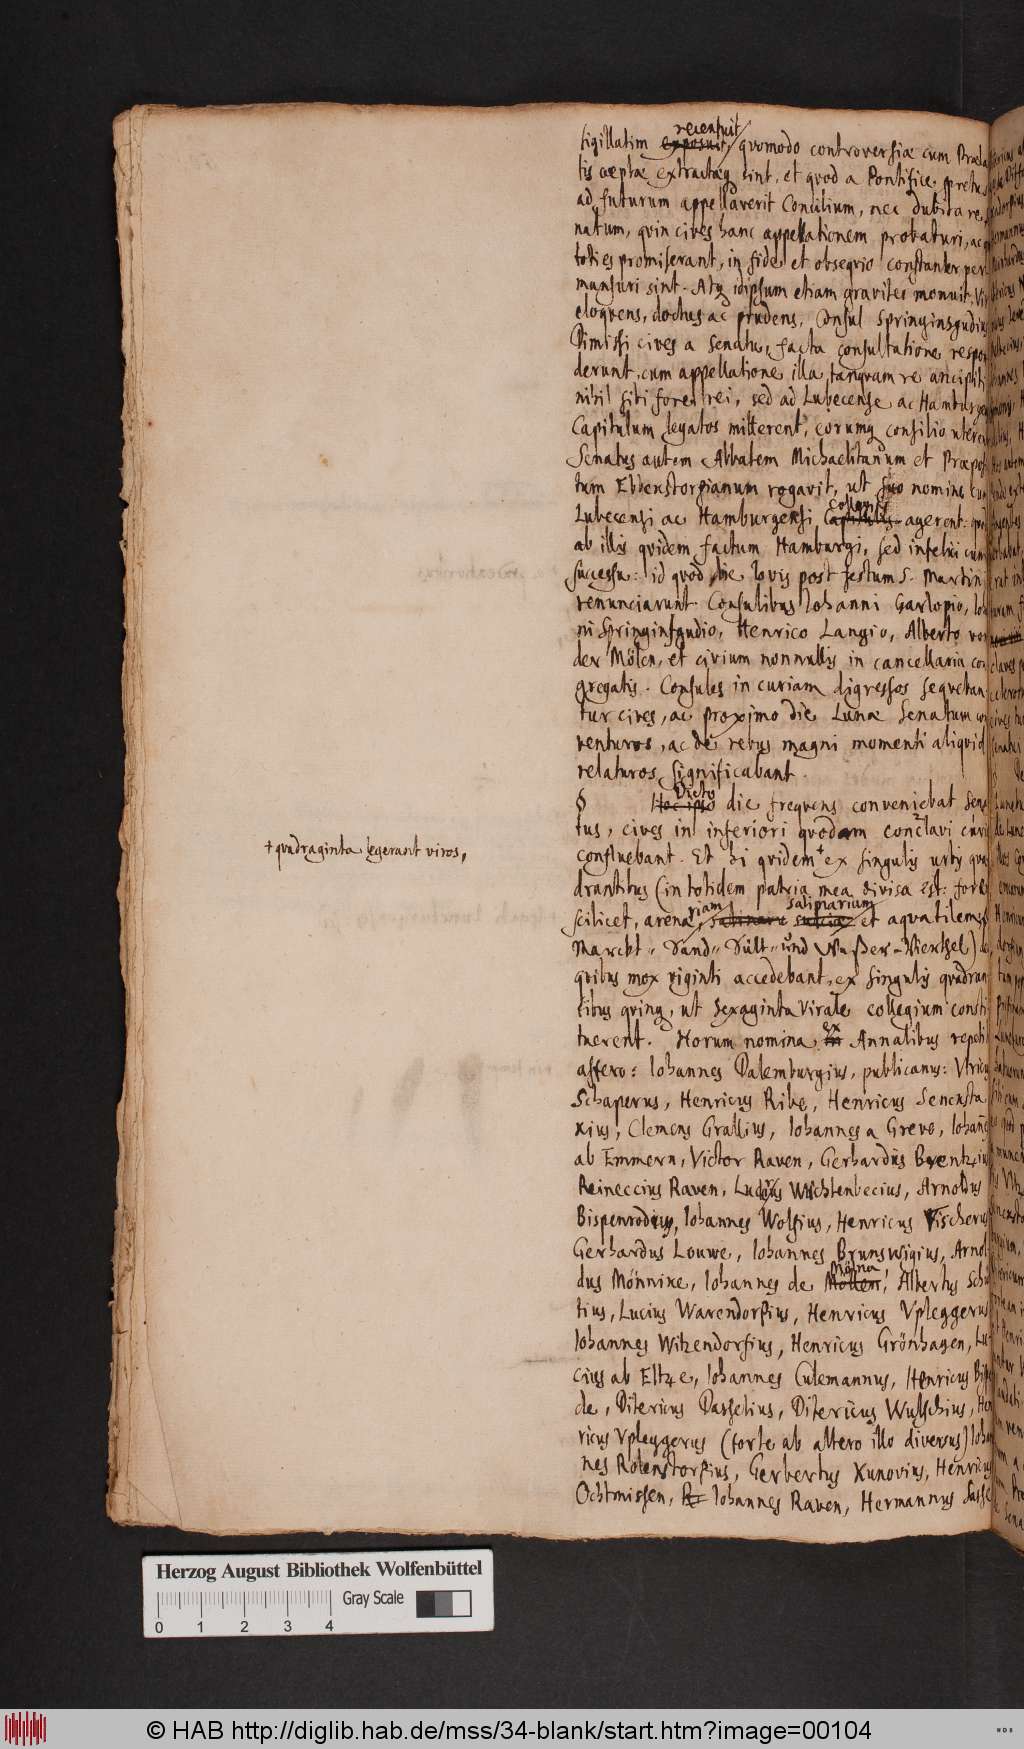 recensuit
sigillatim exposuit, quomodo controversiæ cum Præla
tis cœptæ extractæq sint, et quod a Pontifice spretus
ad futurum appellaverit Concilium, nec dubitare
natum, quin cives hanc appellationem probaturi, ac
toties promiserant, in fide et obsequio constanter per
mansuri sint. Atq idipsum etiam graviter monuit Vir
eloquens, doctus ac prudens, Consul Springinsgudius
Dimissi cives a Senatu, facta consultatione respon
derunt, cum appellatione illa, tanquam re ancipiti
nihil siti fore rei, sed ad Lubecense ac Hamburgen
Capitulum legatos mitterent, eorumq consilio uteren
Senatus autem Abbatem Michaelitanum et Præposi
tum Ebbenstorpianum rogavit, ut suo nomine cum
Lubecensi ac Hamburgensi Capitulis agerent. quod
ab illis quidem factum Hamburgi, sed infelici cum
successu: id quod die Iovis post festum S. Martini
renunciarunt Consulibus Iohanni Garlopio, Ioh
ni Springinsgudio, Henrico Langio, Alberto von
der Mölen, et civium nonnullis in cancellaria con
gregatis. Consules in curiam digressos sequeban
tur cives, ac proximo die Lunæ Senatum con
venturos, ac de rebus magni momenti aliquid
relaturos significabant.
Dicto
§ Hoc ipso die frequens conveniebat Sena
tus, cives in inferiori quodam conclavi curiæ
confluebant. Et hi quidem + ex singulis urbis qua
+ quadraginta legerant viros,
drantibus (in totidem patria mea divisa est: fore
riam salinarium
scilicet, arena, salinare sulciæ et aquatilem
Marckt- Sand- Sült- und Waßer-Vierthel)
quibus mox viginti accedebant, ex singulis quadran
tibus quinq, ut sexaginta virale collegium consti
ex
tuerent. Horum nomina in Annalibus reperti
affero: Iohannes Dalemburgius, publicanus: Ulricus
Schaperus, Henricus Ribe, Henricus Sencksta
kius, Clemens Grallius, Iohannes a Greve, Iohannes
ab Emmern, Victor Raven, Gerhardus Brentzius
Reineccius Raven, Lucius Wichtenbecius, Arnoldus
Bispenrodius, Iohannes Wolfius, Henricus Vischerus
Gerhardus Louwe, Iohannes Brunswigius, Arnol
Molna
dus Mönnike, Iohannes de Mollen, Albertus Schu
tius, Lucius Warendorfius, Henricus Upleggerus
Iohannes Witzendorfius, Henricus Grönhagen, Lu-
cius ab Eltze, Iohannes Culemannus, Henricus Bispe
de, Ditericus Dasselius, Ditericus Wulschius, Hen
ricus Upleggerus (forte ab altero illo diversus) Iohan
nes Rolenstorfius, Gerbertus Kunovius, Henricus
Ochtmissen, Iohannes Raven, Hermannus Sasse
Herzog August Bibliothek Wolfenbüttel
Gray Scale
0 1 2 3 4
© HAB http://diglib.hab.de/mss/34-blank/start.htm?image=00104